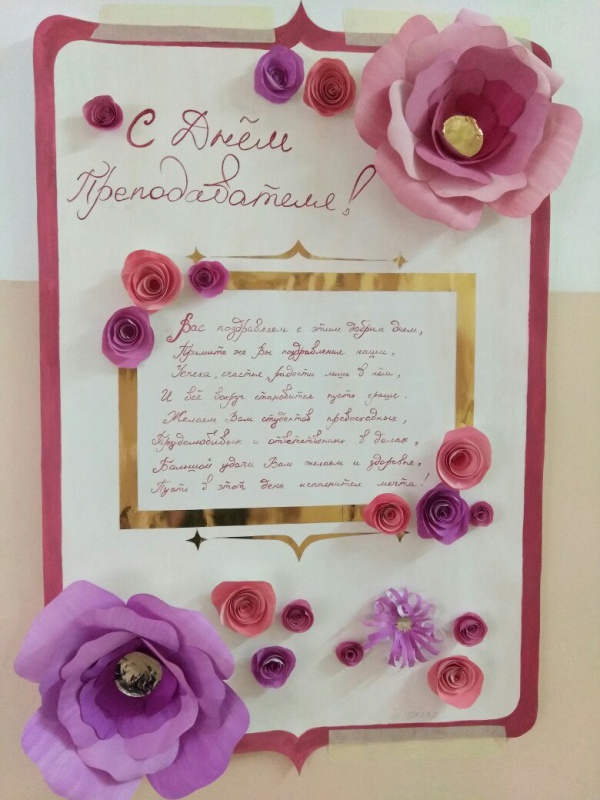 С Днём
Преподавателя!
Вас поздравляем с этим добрым днем,
Примите же Вы поздравления наши,
Успеха, счастья, радости лишь в нём,
И всё вокруг становится пусть краше.
Желаем Вам студентов превосходных,
Трудолюбивых и ответственных в делах,
Большой удачи Вам желаем и здоровье,
Пусть в этот день исполнится мечта!